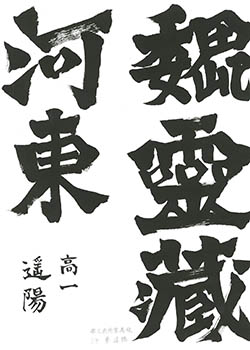 魏靈藏
河東
高一
遥陽